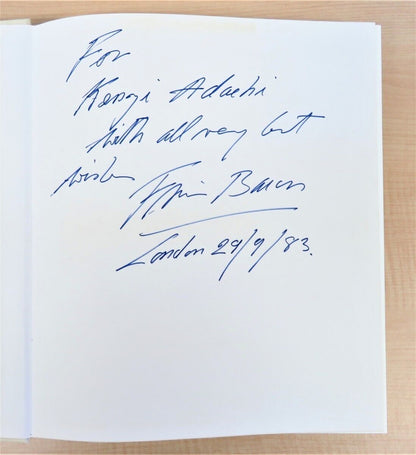 For
Kenji Adachi
with all very best
wishes
Francis Bacon
London 29/9/83.